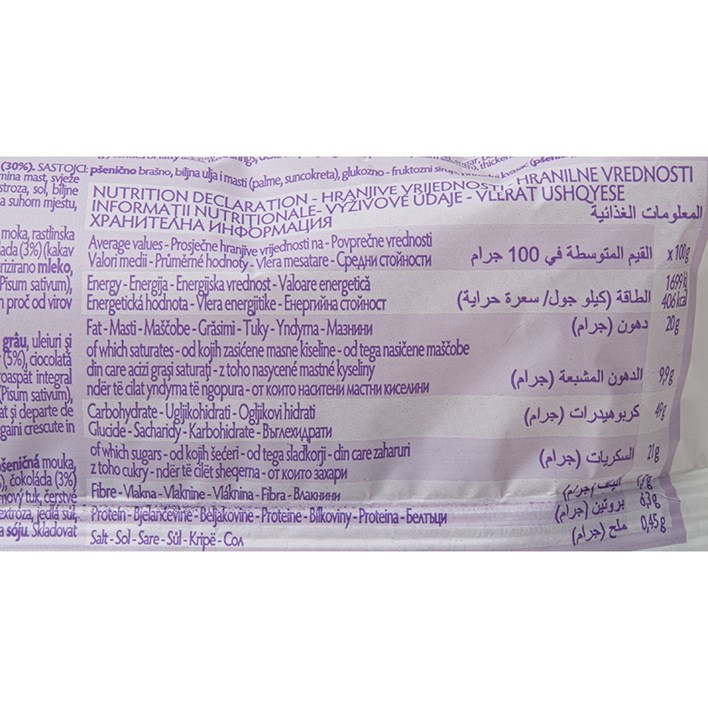 (30%). SASTOJCI: pšenično brašno, biljna ulja i masti (palme, suncokreta), glukozno - fruktozni
mina mast, svježe
stroza, sol, biljne
a suhom mjestu,
moka, rastlinska
lada (3%) (kakav
rizirano mleko,
Pisum sativum),
n proč od virov
grâu, uleiuri și
(3%), ciocolată
roaspăt integral
(Pisum sativum),
at și departe de
gaini crescute in
šeničná mouka,
), čokoláda (3%)
mový tuk, čerstvé
extróza, jedlá sůl,
a sóju. Skladovat
NUTRITION DECLARATION - HRANJIVE VRIJEDNOSTI - HRANILNE VREDNOSTI
INFORMAȚII NUTRIȚIONALE - VÝŽIVOVÉ ÚDAJE - VLERAT USHQYESE
ХРАНИТЕЛНА ИНФОРМАЦИЯ المعلومات الغذائية
Average values - Prosječne hranjive vrijednosti na - Povprečne vrednosti
Valori medii - Průměrné hodnoty - Vlera mesatare - Средни стойности القيم المتوسطة في 100 جرام x 100g
Energy - Energija - Energijska vrednost - Valoare energetică 1699 kJ
Energetická hodnota - Vlera energjitike - Енергийна стойност الطاقة (كيلو جول/ سعرة حراية) 406 kcal
Fat - Masti - Maščobe - Grăsimi - Tuky - Yndyrna - Мазнини دهون (جرام) 20g
of which saturates - od kojih zasićene masne kiseline - od tega nasičene maščobe
din care acizi grași saturați - z toho nasycené mastné kyseliny
ndër të cilat yndyrna të ngopura - от които наситени мастни киселини الدهون المشبعة (جرام) 9,9g
Carbohydrate - Ugljikohidrati - Ogljikovi hidrati
Glucide - Sacharidy - Karbohidrate - Въглехидрати كربوهيدرات (جرام) 49g
of which sugars - od kojih šećeri - od tega sladkorji - din care zaharuri
z toho cukry - ndër të cilët sheqerna - от които захари السكريات (جرام) 21g
Fibre - Vlakna - Vlaknine - Vláknina - Fibra - Влакнини
Protein - Bjelančevine - Beljakovine - Proteine - Bílkoviny - Proteina - Белтъци بروتين (جرام) 6,3g
Salt - Sol - Sare - Sůl - Kripë - Сол ملح (جرام) 0,45g